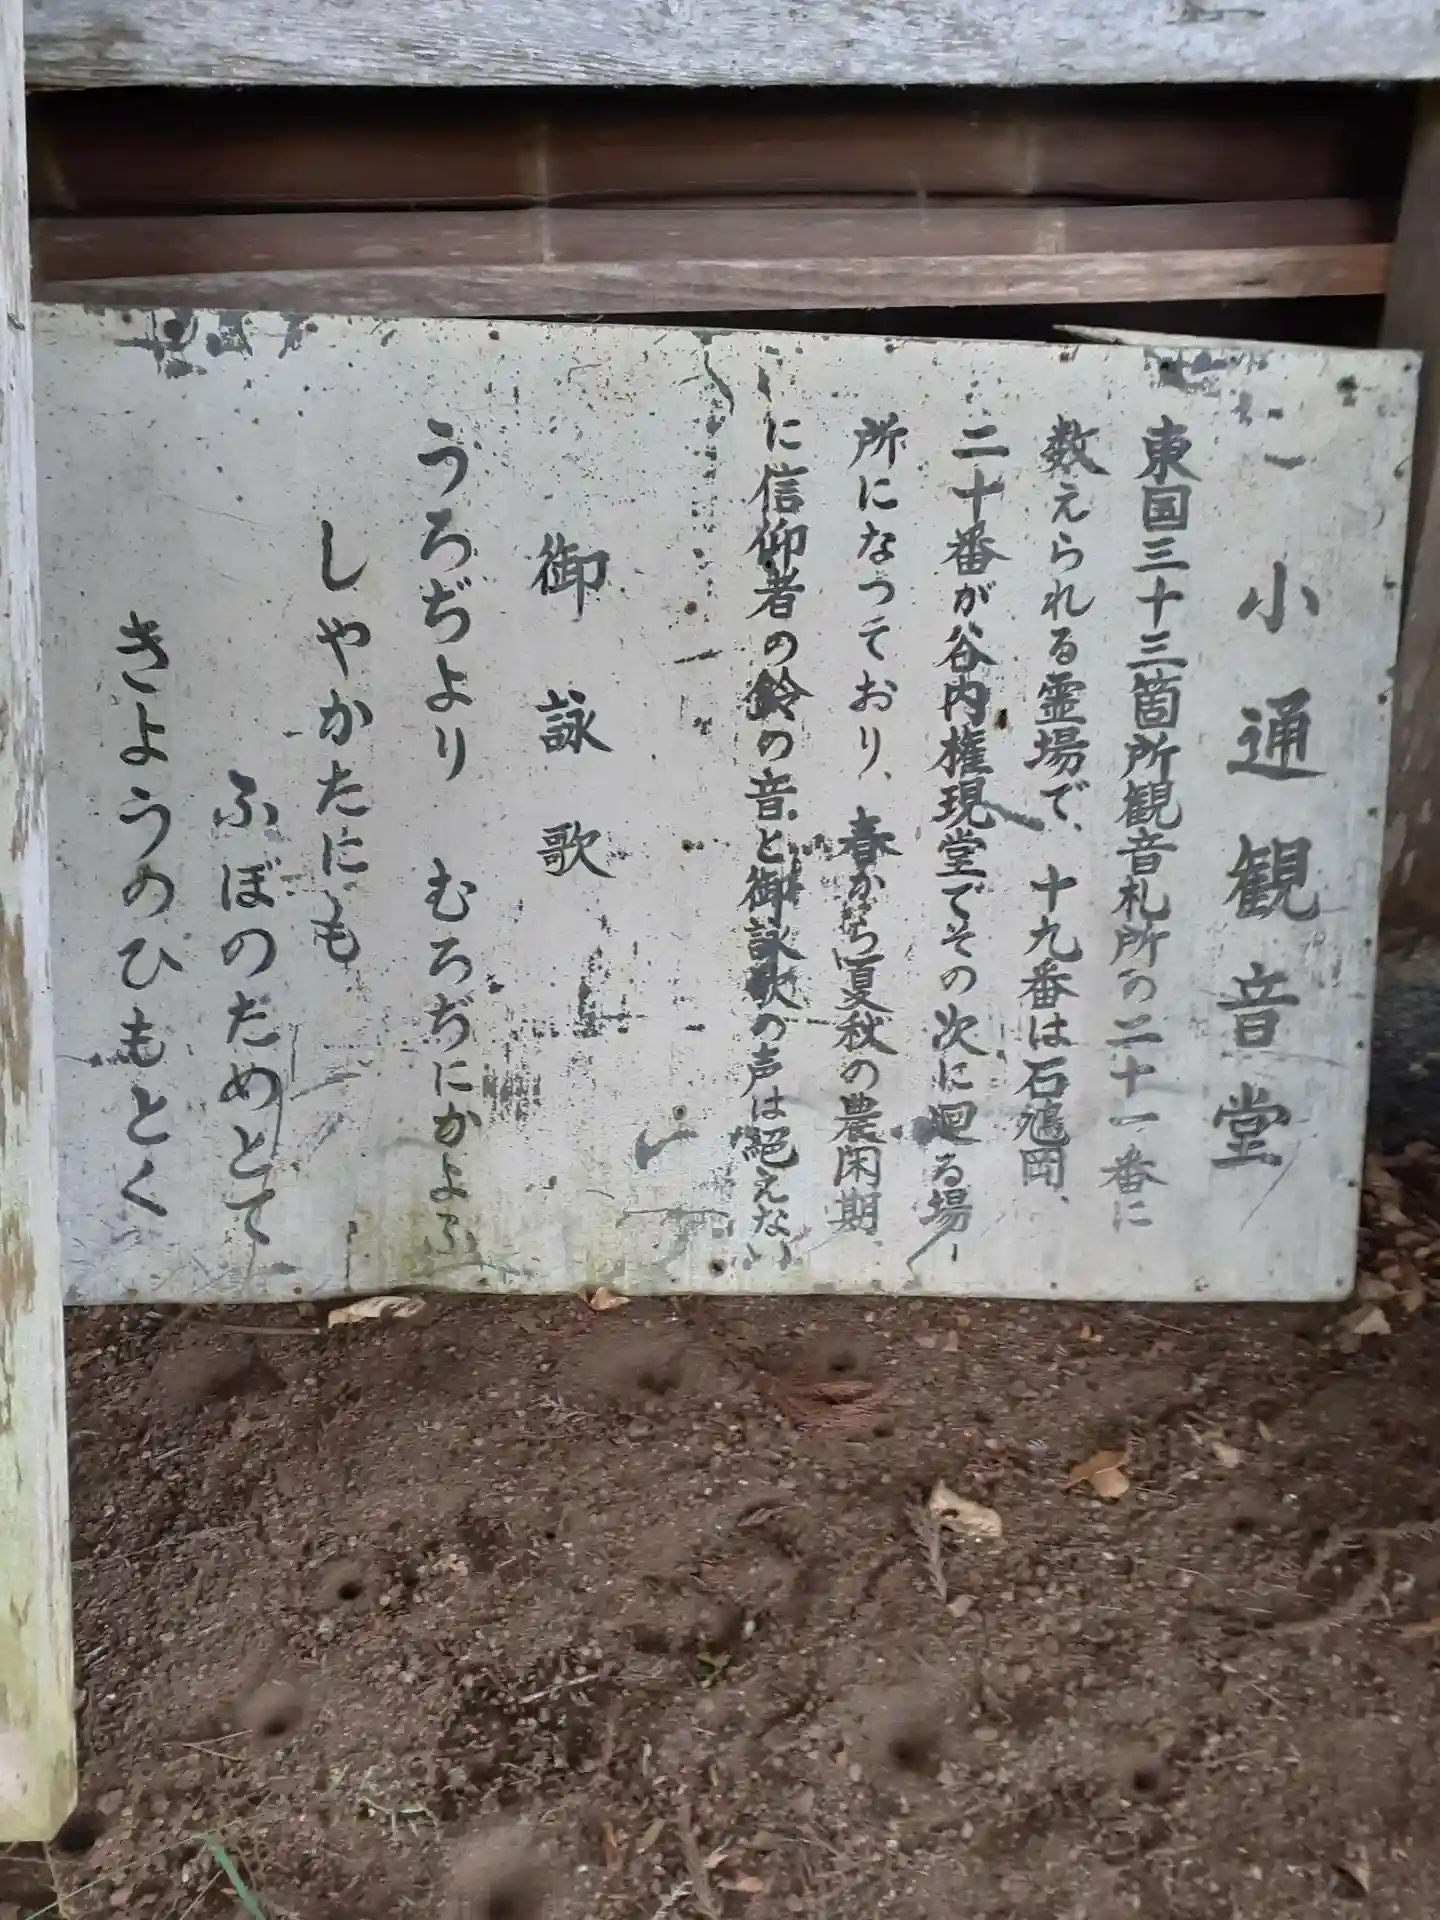 小通観音堂
東国三十三箇所観音札所の二十一番に
数えられる霊場で、十九番は石鴻岡、
二十番が谷内権現堂でその次に廻る場
所になつており、春から夏秋の農閑期、
に信仰者の鈴の音と御詠歌の声は絶えない
御詠歌
うろぢより むろぢにかよふ
しやかたにも
ふぼのためとて
きようのひもとく